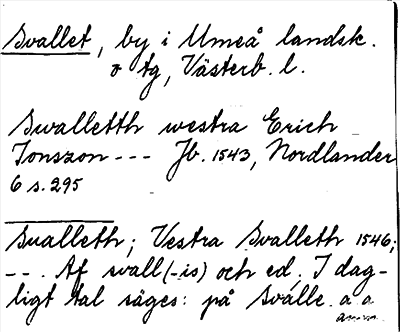 Svallet, by i Umeå landsk.
o tg, Västerb. l.
Swalletth westra Erich
Jonszon --- Jb. 1543, Nordlander
6 s. 295
Sualleth; Vestra Svalleth 1546;
--. Af svall (-is) och ed. I dag-
ligt tal säges: på Svalle. a. a.